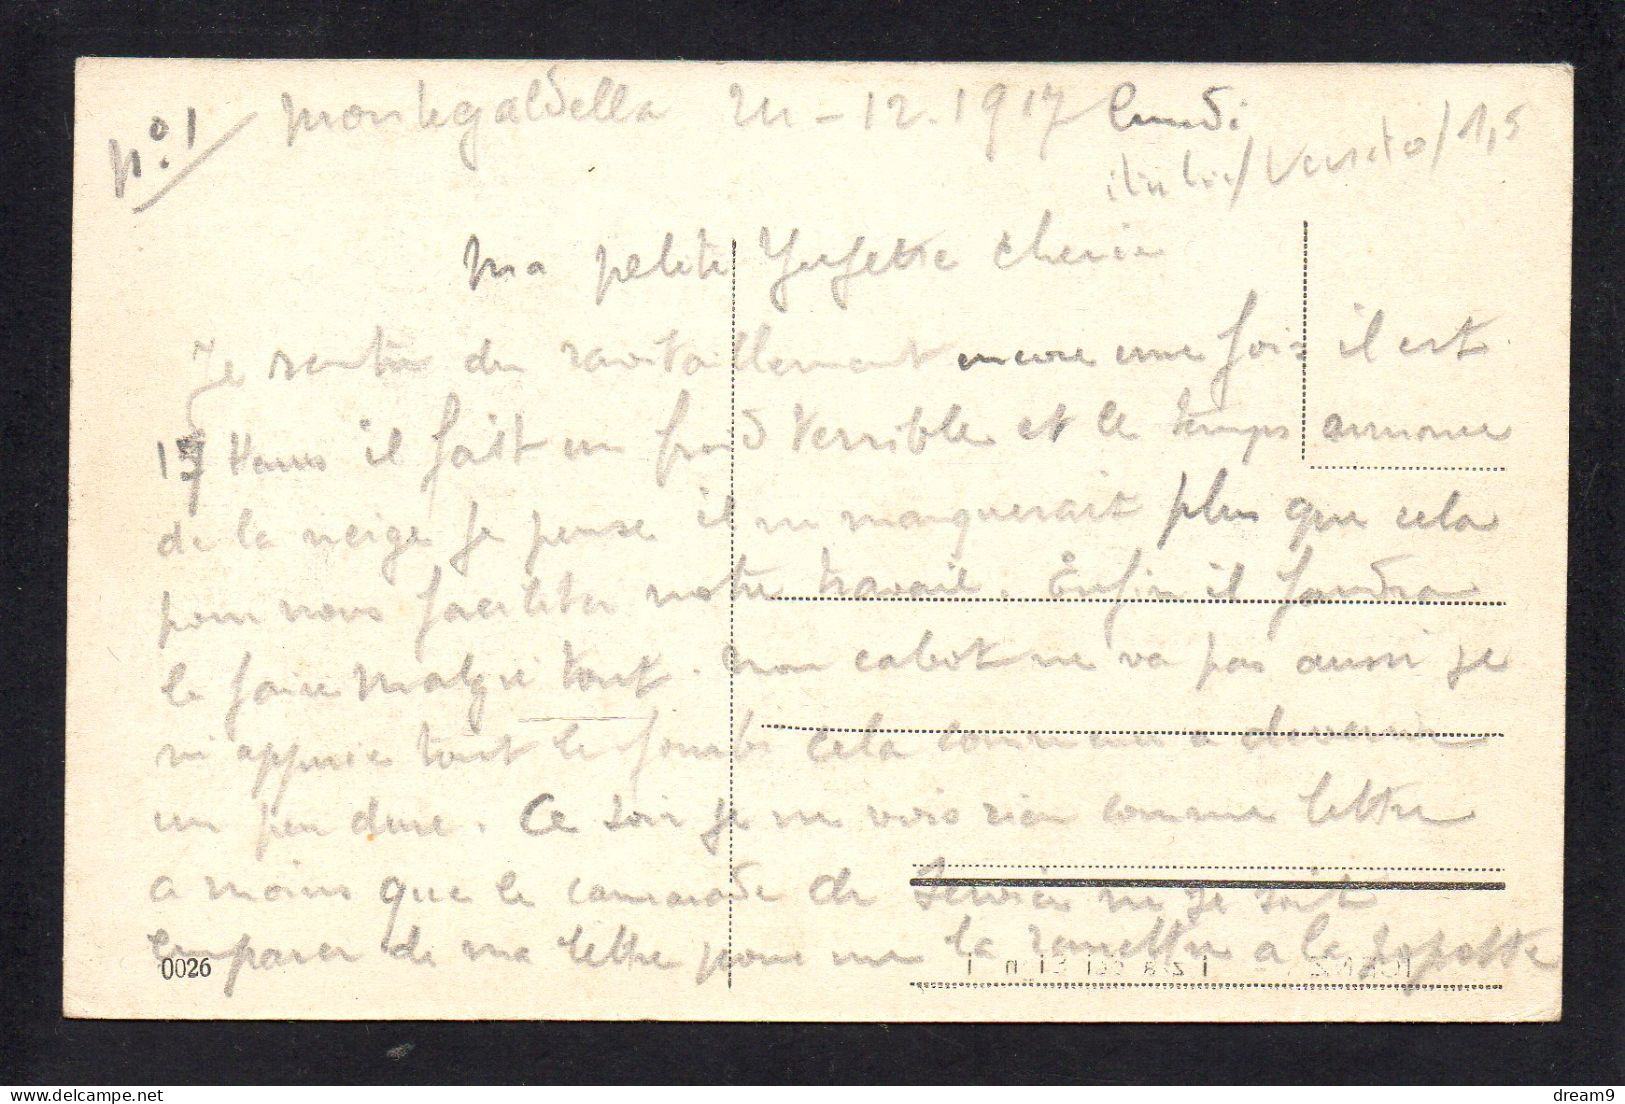 n°. 1
Montegaldella 24 - 12. 1917 lundi
/ Veneto / 1,5
Ma petite cherie
Je rentre du ravitaillement encore une fois il est
17 heures il fait un froid terrible et le temps annonce
de la neige je pense il ne manquerait plus que cela
pour nous faciliter notre travail. Enfin il faudra
le faire malgre tout. Mon cabot ne va pas aussi je
m appuie tout le fourbi cela commence a devenir
un peu dure. Ce soir je ne vois rien comme lettre
a moins que le camarade de service ne se soit
emparer de ma lettre pour me la remettre a la popotte
0026